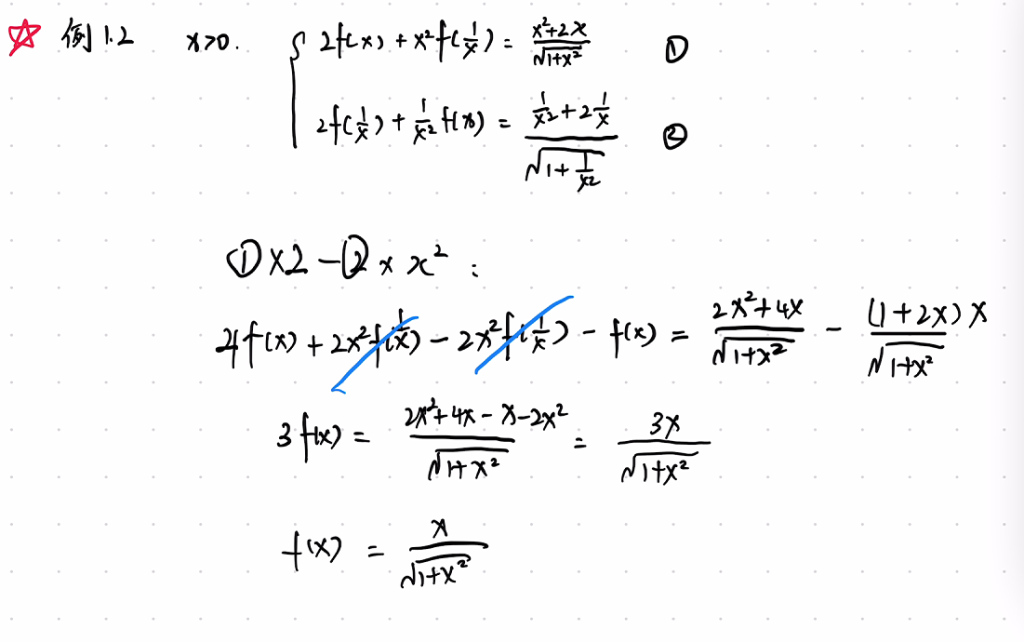 ☆ 例 1.2 x>0. { 2f(x) + x²f(1/x) = (x²+2x)/√(1+x²) ①
2f(1/x) + 1/x² f(x) = (1/x² + 2 1/x)/√(1+1/x²) ②
①×2 - ②×x² :
4f(x) + 2x²f(1/x) - 2x²f(1/x) - f(x) = (2x²+4x)/√(1+x²) - (1+2x)x/√(1+x²)
3f(x) = (2x²+4x-x-2x²)/√(1+x²) = 3x/√(1+x²)
f(x) = x/√(1+x²)